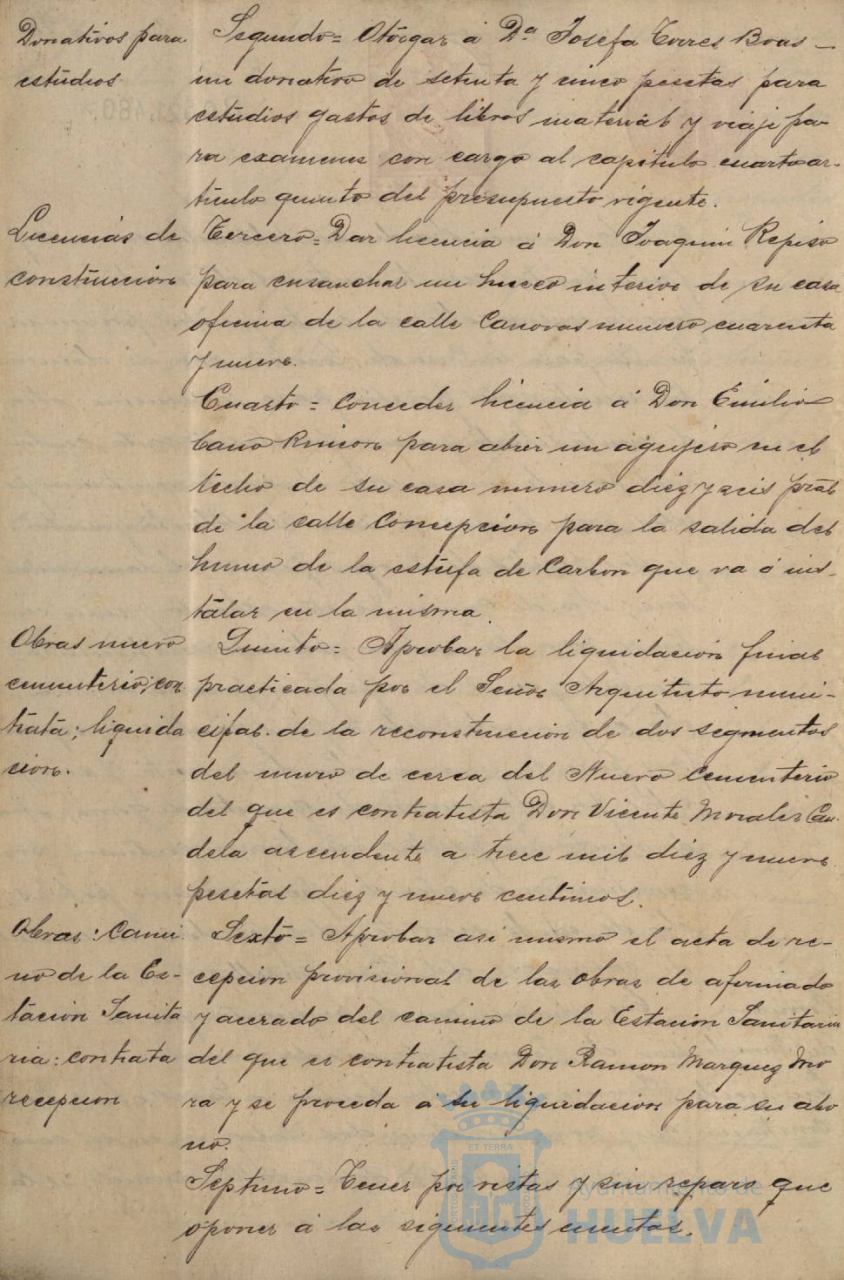 Donativos para
estudios
Segundo = Otorgar á Dª Josefa Torres Boas
un donativo de setenta y cinco pesetas para
estudios gastos de libros material y viaje pa-
ra examenes con cargo al capitulo cuarto ar-
tículo quinto del presupuesto vigente.
Licencias de
construccion
Tercero = Dar licencia á Don Joaquin Repiso
para ensanchar un hueco interior de su casa
oficina de la calle Canovas numero cuarenta
y nueve.
Cuarto = Conceder licencia á Don Emilio
Cano Rincon para abrir un agujero en el
techo de su casa numero diez y seis pral
de la calle Concepcion para la salida del
humo de la estufa de Carbon que va á ins-
talar en la misma.
Obras nuevo
cementerio; con-
trata; liquida
cion.
Quinto = Aprobar la liquidacion final
practicada por el Señor Arquitecto muni-
cipal de la reconstruccion de dos segmentos
del muro de cerca del Nuevo Cementerio
del que es contratista Don Vicente Morales Can-
dela ascendente a trece mil diez y nueve
pesetas diez y nueve centimos.
Obras: Cami
no de la Es-
tacion Sanita
ria: contrata
recepcion
Sexto = Aprobar asi mismo el acta de re-
cepcion provisional de las obras de afirmado
y acerado del camino de la Estacion Sanitaria
del que es contratista Don Ramon Marquez Mo
ra y se proceda á su liquidacion para su abo
no.
Septimo = Tener por vistas y sin reparo que
oponer á las siguientes cuentas.
ET TERRA
Ayuntamiento de
HUELVA